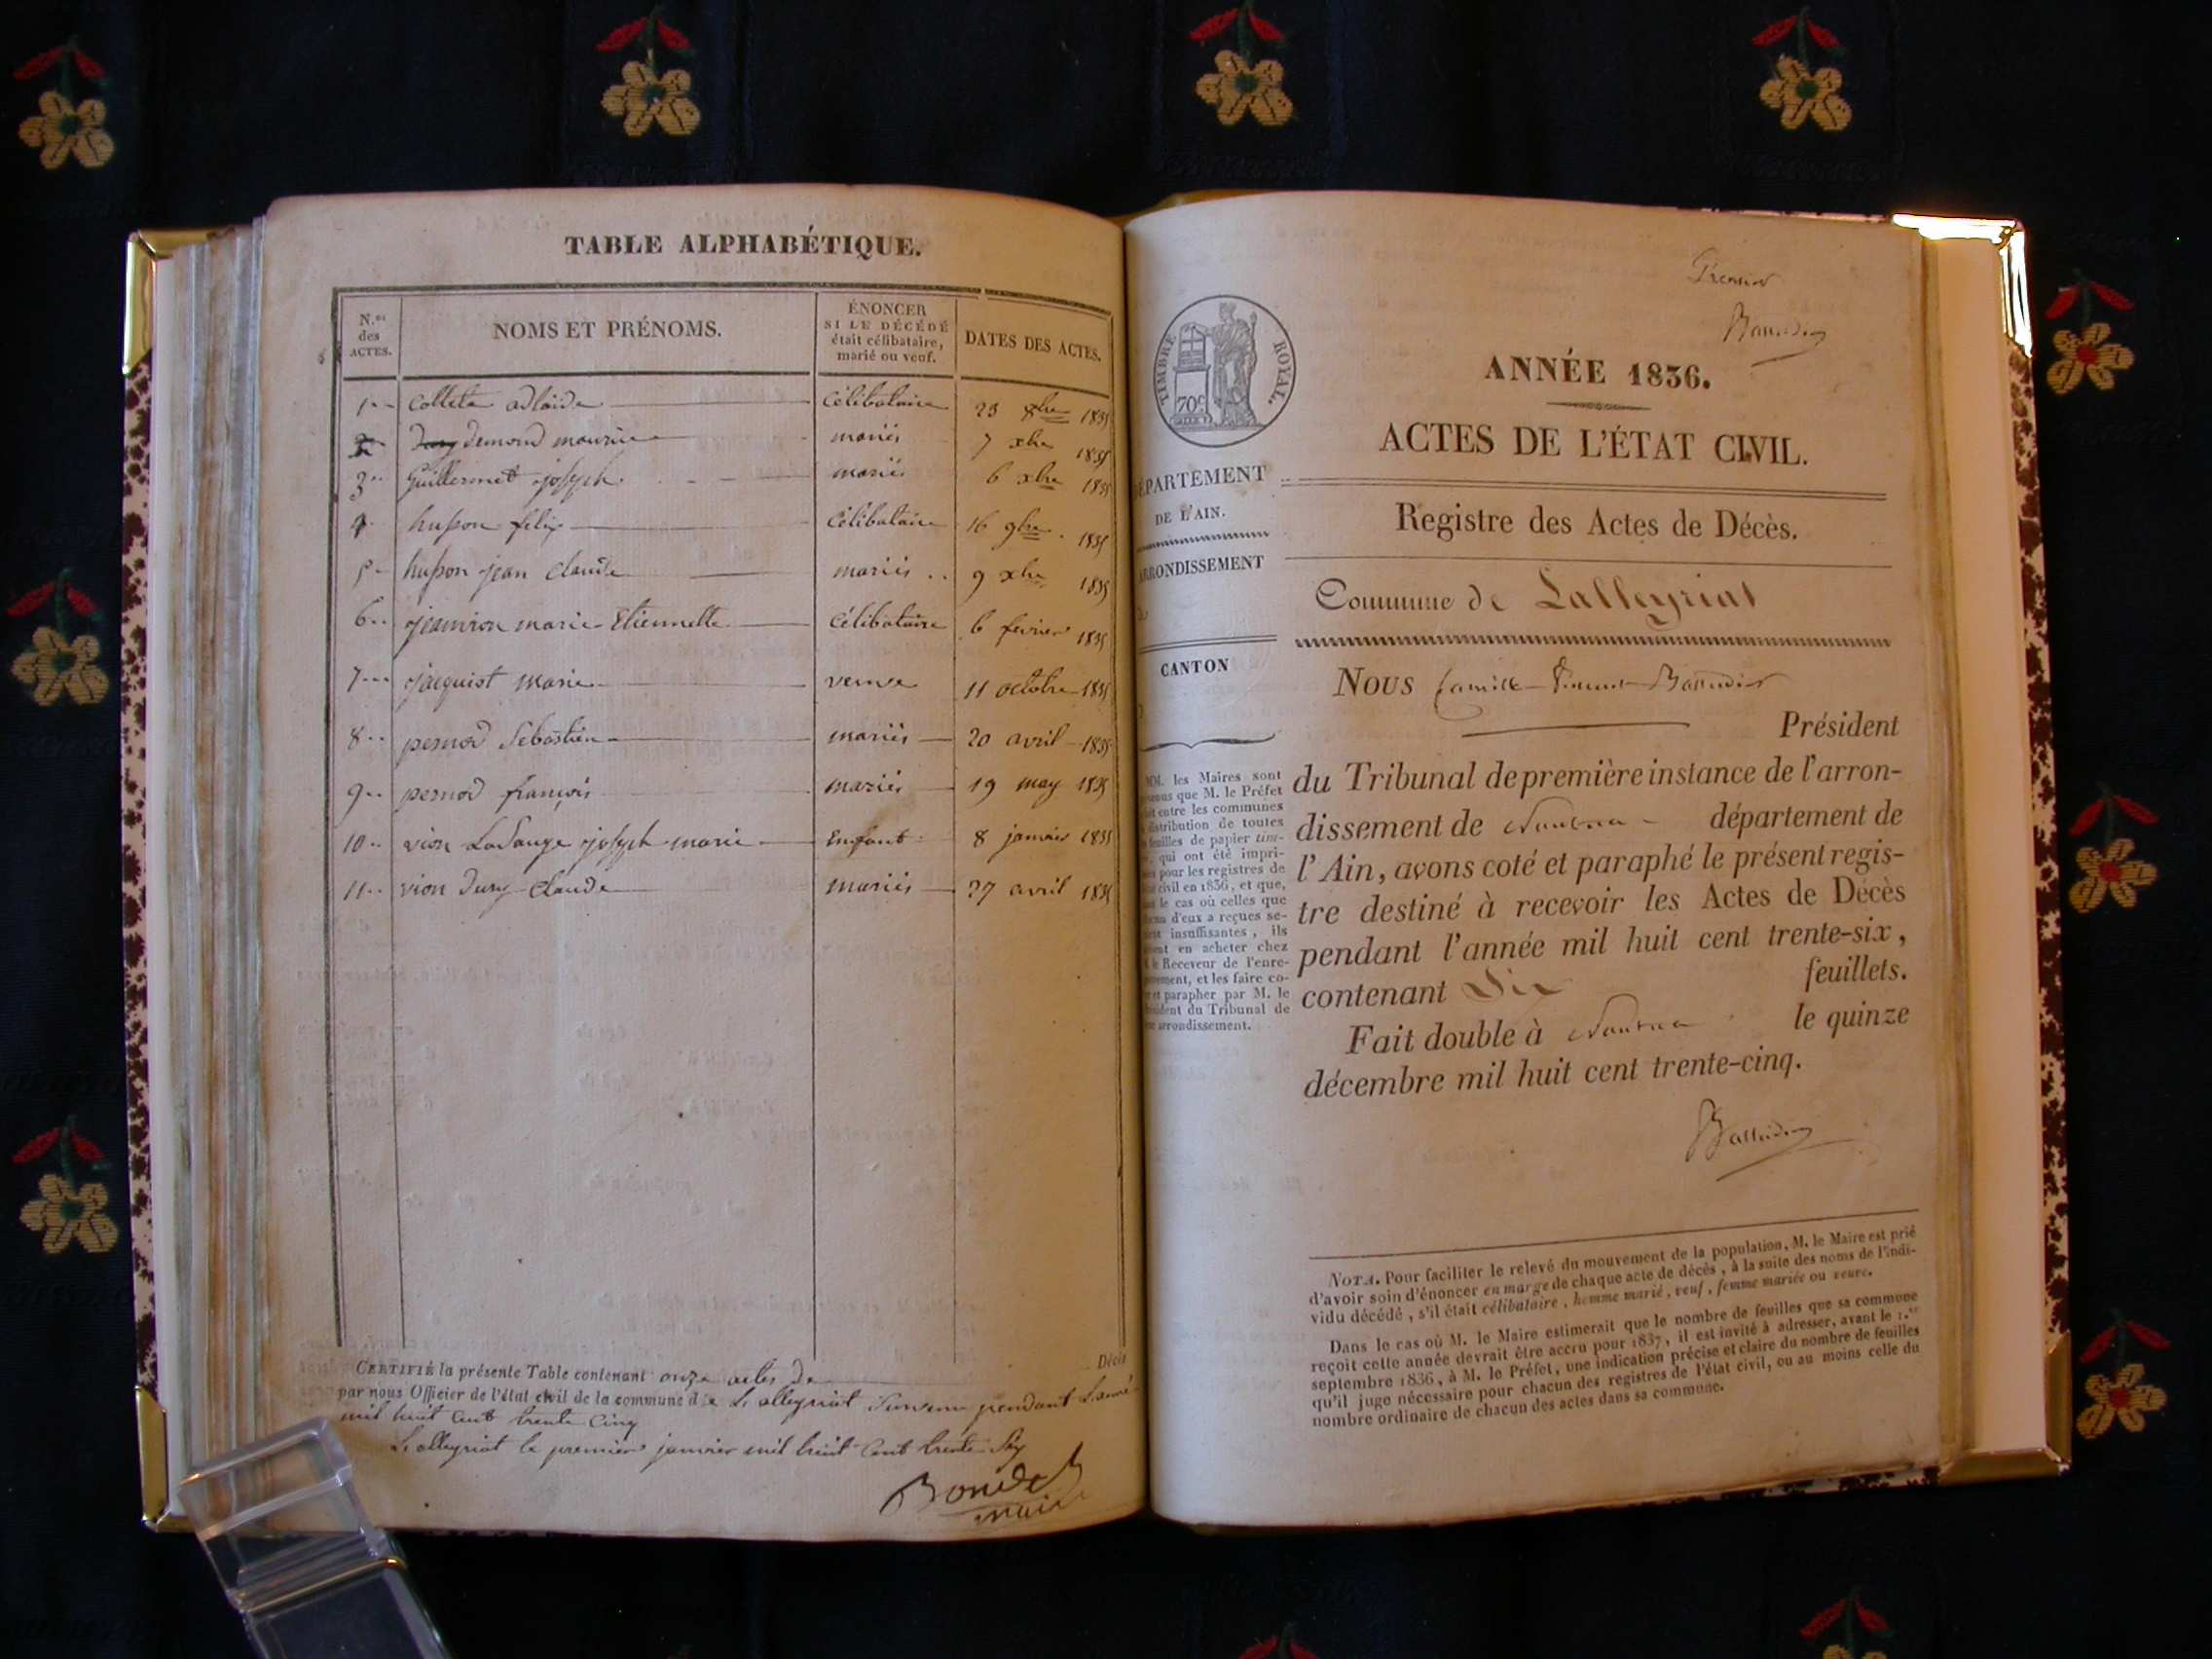 TABLE ALPHABÉTIQUE.
N.os des ACTES.
NOMS ET PRÉNOMS.
ÉNONCER SI LE DÉCÉDÉ était célibataire, marié ou veuf.
DATES DES ACTES.
1 Collete adlaïde célibataire 23 8bre 1835
2 demond maurice mariés 7 xbre 1835
3 Guillermet joseph mariés 6 xbre 1835
4 husson felix célibataire 16 9bre 1835
5 husson jean claude mariés 9 xbre 1835
6 marie Etiennette célibataire 6 fevrier 1835
7 jacquiot marie veuve 11 octobre 1835
8 pernod Sebastien mariés 20 avril 1835
9 pernod françois mariés 19 may 1835
10 vion joseph marie Enfant 8 janvier 1835
11 vion dury Claude mariés 27 avril 1835
CERTIFIÉ la présente Table contenant onze actes de Décès
par nous Officier de l'état civil de la commune de Lalleyriat Survenu pendant L'année
mil huit cent trente cinq
Lalleyriat le premier janvier mil huit cent trente Six
maire
Premier
ANNÉE 1836.
TIMBRE ROYAL.
70c
ACTES DE L'ÉTAT CIVIL.
DÉPARTEMENT
DE L'AIN.
Registre des Actes de Décès.
ARRONDISSEMENT
Commune de Lalleyriat
CANTON
NOUS Camille Vincent
Président
du Tribunal de première instance de l'arron-
dissement de Nantua département de
l'Ain, avons coté et paraphé le présent regis-
tre destiné à recevoir les Actes de Décès
pendant l'année mil huit cent trente-six,
contenant Six feuillets.
Fait double à Nantua le quinze
décembre mil huit cent trente-cinq.
MM. les Maires sont
que M. le Préfet
entre les communes
distribution de toutes
feuilles de papier tim-
qui ont été impri-
pour les registres de
civil en 1836, et que,
le cas où celles que
d'eux a reçues se-
insuffisantes, ils
en acheter chez
le Receveur de l'enre-
et les faire co-
et parapher par M. le
Président du Tribunal de
arrondissement.
NOTA. Pour faciliter le relevé du mouvement de la population, M. le Maire est prié
d'avoir soin d'énoncer en marge de chaque acte de décès, à la suite des noms de l'indi-
vidu décédé, s'il était célibataire, homme marié, veuf, femme mariée ou veuve.
Dans le cas où M. le Maire estimerait que le nombre de feuilles que sa commune
reçoit cette année devrait être accru pour 1837, il est invité à adresser, avant le 1.er
septembre 1836, à M. le Préfet, une indication précise et claire du nombre de feuilles
qu'il juge nécessaire pour chacun des registres de l'état civil, ou au moins celle du
nombre ordinaire de chacun des actes dans sa commune.